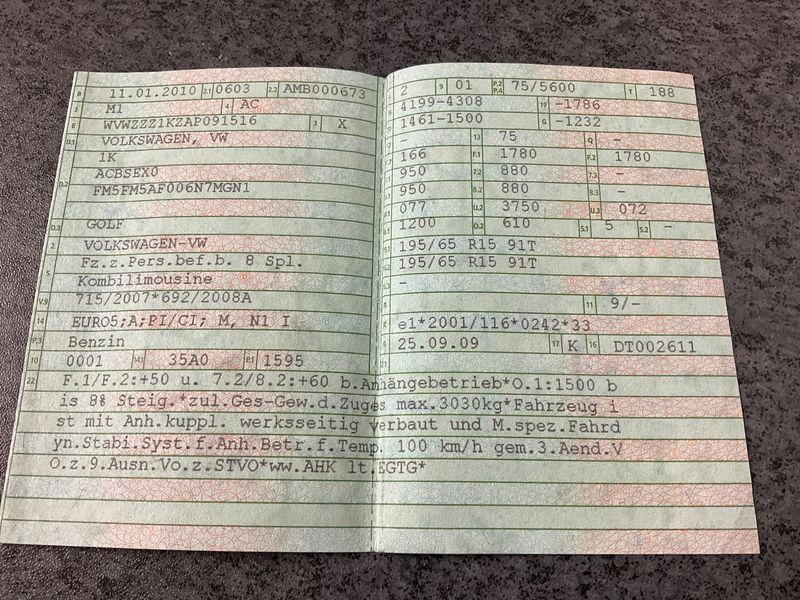 B 11.01.2010 2.1 0603 2.2 AMB000673
J M1 4 AC
E WVWZZZ1KZAP091516 3 X
D.1 VOLKSWAGEN, VW
1K
D.2 ACBSEX0
FM5FM5AF006N7MGN1
D.3 GOLF
2 VOLKSWAGEN-VW
5 Fz.z.Pers.bef.b. 8 Spl.
Kombilimousine
V.9 715/2007*692/2008A
14 EURO5;A;PI/CI; M, N1 I
P.3 Benzin
10 0001 14.1 35A0 P.1 1595
2 9 01 P.2 P.4 75/5600 T 188
4199-4308 19 -1786
1461-1500 G -1232
- 13 75 Q -
166 F.1 1780 F.2 1780
950 7.2 880 7.3 -
950 8.2 880 8.3 -
077 U.2 3750 U.3 072
1200 O.2 610 S.1 5 S.2 -
195/65 R15 91T
195/65 R15 91T
-
11 9/-
K e1*2001/116*0242*33
6 25.09.09 17 K 16 DT002611
21
22 F.1/F.2:+50 u. 7.2/8.2:+60 b.Anhängebetrieb*O.1:1500 b
is 8% Steig.*zul.Ges-Gew.d.Zuges max.3030kg*Fahrzeug i
st mit Anh.kuppl. werksseitig verbaut und M.spez.Fahrd
yn.Stabi.Syst.f.Anh.Betr.f.Temp. 100 km/h gem.3.Aend.V
O.z.9.Ausn.Vo.z.STVO*ww.AHK lt.EGTG*